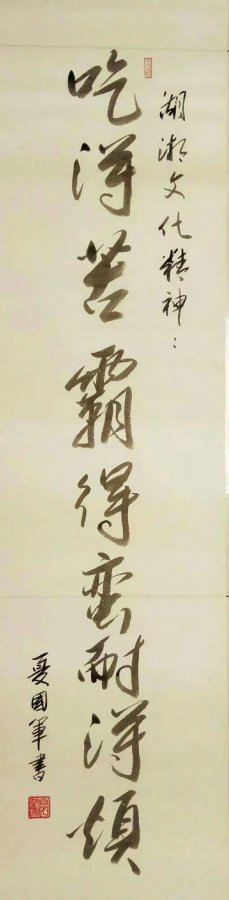 湖湘文化精神：
吃得苦霸得蛮耐得烦
夏国军书